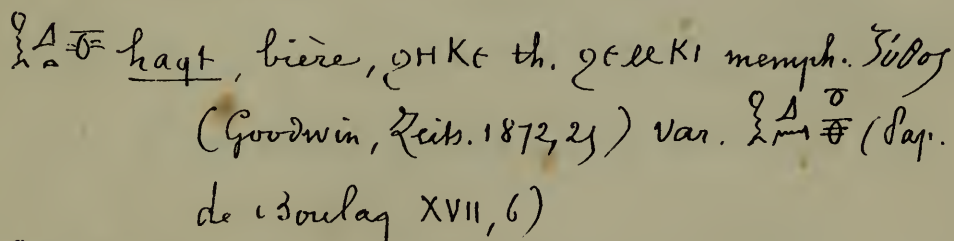 𓎛𓈎𓏏𓏊 haqt, bière, ϩⲏⲕⲉ th. ϩⲉⲙⲕⲓ memph. ζύθος
(Goodwin, Zeits. 1872, 25) var. 𓎛𓈎𓈖 (Pap.
de Boulaq XVII, 6)